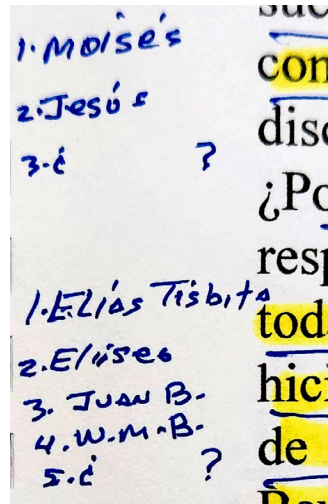 1. Moisés
2. Jesús
3. ¿ ?
1. Elías Tisbita
2. Eliseo
3. Juan B.
4. W.M.B.
5. ¿ ?
suc
con
disc
¿Po
resp
tod
hici
de